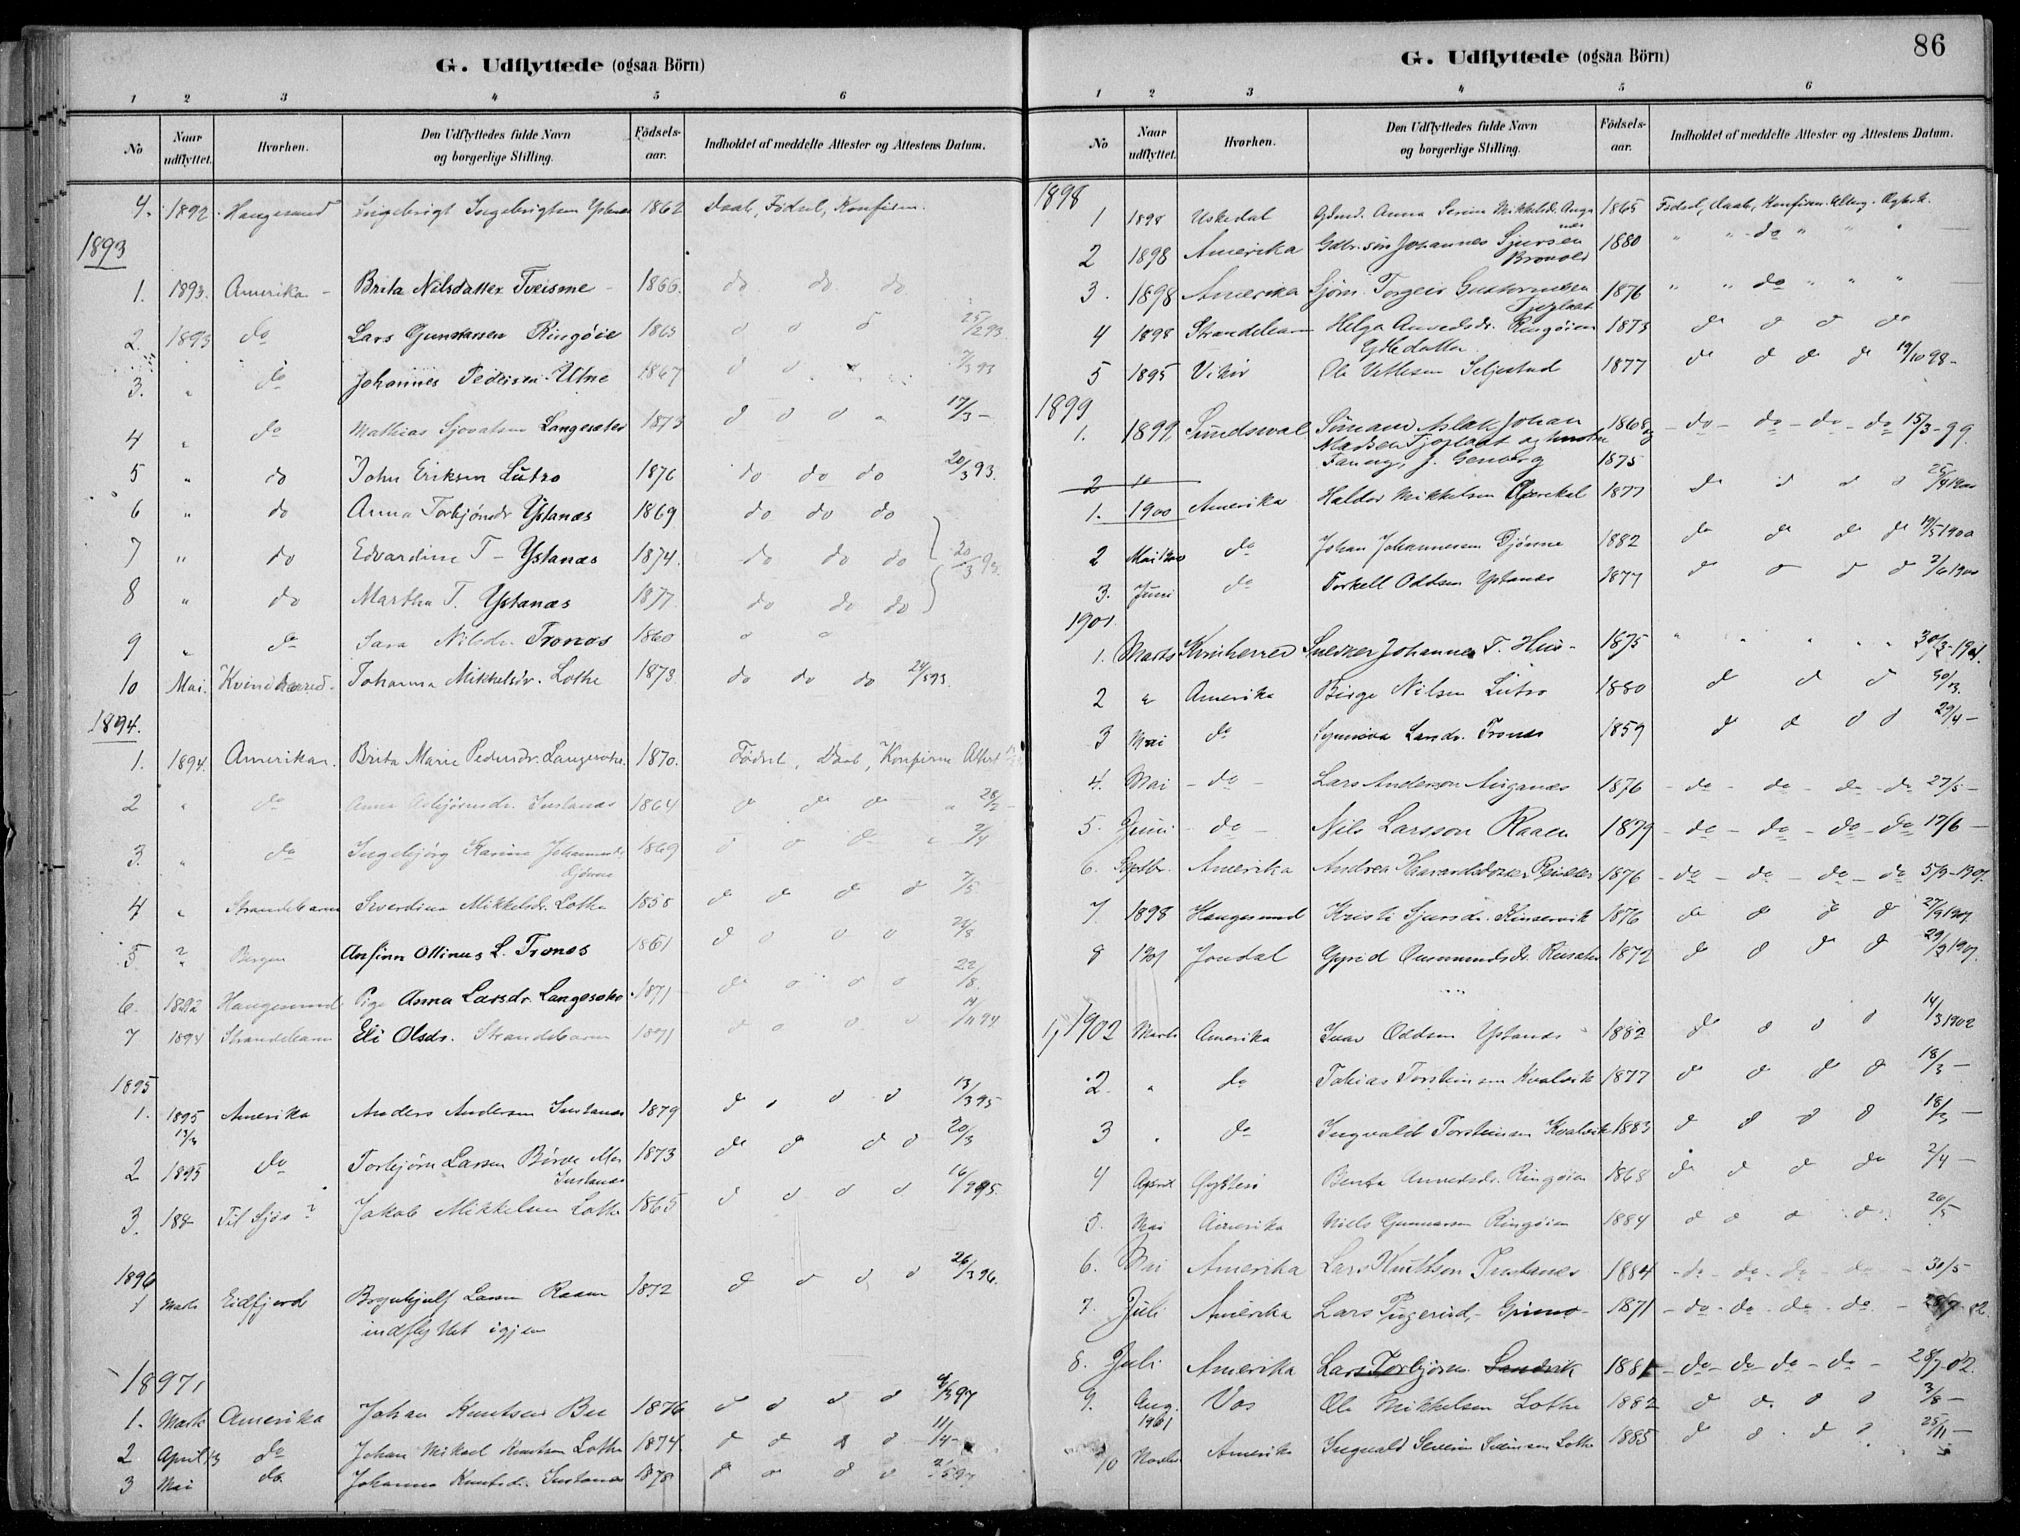 G. Udflyttede (ogsaa Börn)
1 2 3 4 5 6
No Naar udflyttet. Hvorhen. Den Udflyttedes fulde Navn og borgerlige Stilling. Födselsaar. Indholdet af meddelte Attester og Attestens Datum.
4. 1892 Haugesund Ingebrigt Ingebrigtsen Ystanæs 1862 Daab, Födsel, Konfirm.
1893
1. 1893. Amerika Brita Nilsdatter Tveisme 1866. do do do
2. 1893 do Lars Gunnarsen Ringøie 1863 d d d 25/2 93.
3. " do Johannes Pedersen Utne 1867 d d 7/3 93
4 " do Mathias Sjovatsen Langesæter 1873 d d d " 17/3 –
5 " do John Eriksen Lutro 1876 do do do 20/3 93.
6 " do Anna Torbjønsdr Ystanæs 1869 do do do
7 " do Edvardine T – Ystanæs 1874. do do do 20/3 93
8 " do Martha T. Ystanæs 1877. do do do
9 " do Sara Nilsdr. Tronæs 1860 " "
10 Mai. Kvindherred. Johanna Mikkelsdr. Lothe 1873. do do do 24/5 93.
1894.
1. 1894. Amerika. Brita Marie Pedersdr. Langesæter 1870. Födsel, Daab, Konfirm Attest
2 " do Anna Asbjørnsdr. Instanæs 1864 d d d " 28/2 –
3. " do Ingebjörg Karina Johannesdr. Djönne 1869 d d d " 2/4
4 " Strandebarm Severdina Mikkelsdr. Lothe 1858 d d d d 7/5
5. ? Bergen Ansfinn Ollinus L. Tronæs 1861 d d d d 24/8
6. 1892 Haugesund Pige Anna Larsdr. Langesæter 1871 d d d d 22/8.
7 1894 Strandebarm Eli Olsdr. Strandebarm 1871 d d d d 14/11 94
1895
1. 1895 13/3 Amerika Anders Andersen Instanæs 1879 d d d d 13/3 95
2 1895 do Torbjörn Larsen Börve Instanæs 1873 d d d d 20/3
3. 188– Til Sjøs? Jakob Mikkelsen Lothe 1865 d d d d 16/9 95.
1896
1 Marts Eidfjord Brynhjulf Larsen Raaen 1872 d d d d 26/3 96.
indflyttet igjen
1897
1. Marts Amerika Johan Knutsen Bu 1876 d d d d 4/3 97
2 April do Johan Mikael Knutsen Lothe 1874. d d d d 11/4 –
3 Mai do. Johanna Knutsdr. Instanæs 1878 d d d d
86
G. Udflyttede (ogsaa Börn)
1 2 3 4 5 6
No Naar udflyttet. Hvorhen. Den Udflyttedes fulde Navn og borgerlige Stilling. Födselsaar. Indholdet af meddelte Attester og Attestens Datum.
1898
1 1898 Uskedal Anna Serine Mikkelsdr. Auganæs 1865 Födsel, Daab, Konfirm.
2 1898 Amerika Gdbr. sön Johannes Sjursen Brovold 1880 " " do " " "
3. 1898 Amerika Sjöm. Torgeir Guttormsen Tjoflaat 1876 " " do " " "
4 1898 Strandebarm Helga Amundsdr. Ringöien 1873 d d d do
Gbr datter
5 1895 Vikör Ole Vetlesen Seljestad 1877 d d d d 19/10 98 –
1899
1. 1899. Sundsval Sömand Aslak Johan 1868 – do – do – do – do 15/3 – 99.
Madsen Tjoflaat og hustru
Fanny, J. Genberg 1875
2 "
1. 1900 Amerika Haldor Mikkelsen 1877 d d d d 25/4 1900
2 Mai 1900 do Johan Johannesen Djönne 1882 d d d d 19/5 1900
3. Juni do Torkell Oddsen Ystanæs 1877 d d d d 7/6 1900
1901
1. Marts Kvinherred Snedker Johannes T. Hus – 1875 " " " " 30/3 – 1901.
2 " Amerika Birge Nilsen Lutro 1880 d d d 30/3.
3 Mai do Synneva Larsdr. Tronæs 1859 d d d d 29/4 –
4. Mai – do – Lars Anderson Auganæs 1876 – do – do – do – do 27/5 –
5. Juni – do – Nils Larsson Raaen 1879 – do – do – do – do 17/6 –
6. Septbr. Amerika Andrea Haavardsdotter Reisæter 1876 – do – do – do – do 5/9 – 1901.
7 1898 Haugesund Kristi Sjursdr. Kinservik 1876 d d d d 27/9 1901.
8 1901 Jondal Gyrid Aasmundsdr. Reisæter 1872 d d d d 29/9 1901.
1, 1902 Marts Amerika Ivar Oddsen Ystanæs 1882 d d d d 14/3 1902
2. " do Tobias Torsteinsen Kvalvik 1877 d d d d 18/3 –
3 " do Ingvald Torsteinsen Kvalvik 1883 d d d d 18/3 –
4 April Öystesö Benta Amundsdr. Ringöien 1868 d d d do 2/4 –
5. Mai Amerika Niels Gunnarsen Ringöien 1884 d d d d 26/5
6. Mai Amerika Lars Knutson Instanes 1884 – do – do – do – do – 30/5
7. Juli Amerika Lars 1871 – do – do – do – do – 28/7 02.
8. Juli Amerika Lars Torbjörn Sandvik 1881 – do – do – do – do – 28/7 02.
9. Aug. 1901 Vos Ole Mikkelsen Lothe 1882 d d. d d 3/8 –
10 Novbr Amerika Ingvald Severin Lothe 1885 d d d d 25/11 –